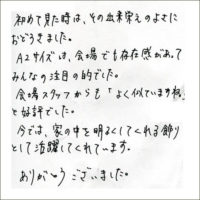 初めて見た時は、その出来栄えのよさに
おどろきました。
A2サイズは、会場でも存在感があって
みんなの注目の的でした。
会場スタッフからも「よく似ていますね」
と好評でした。
今では、家の中を明るくしてくれる飾り
として活躍してくれています。
ありがとうございました。